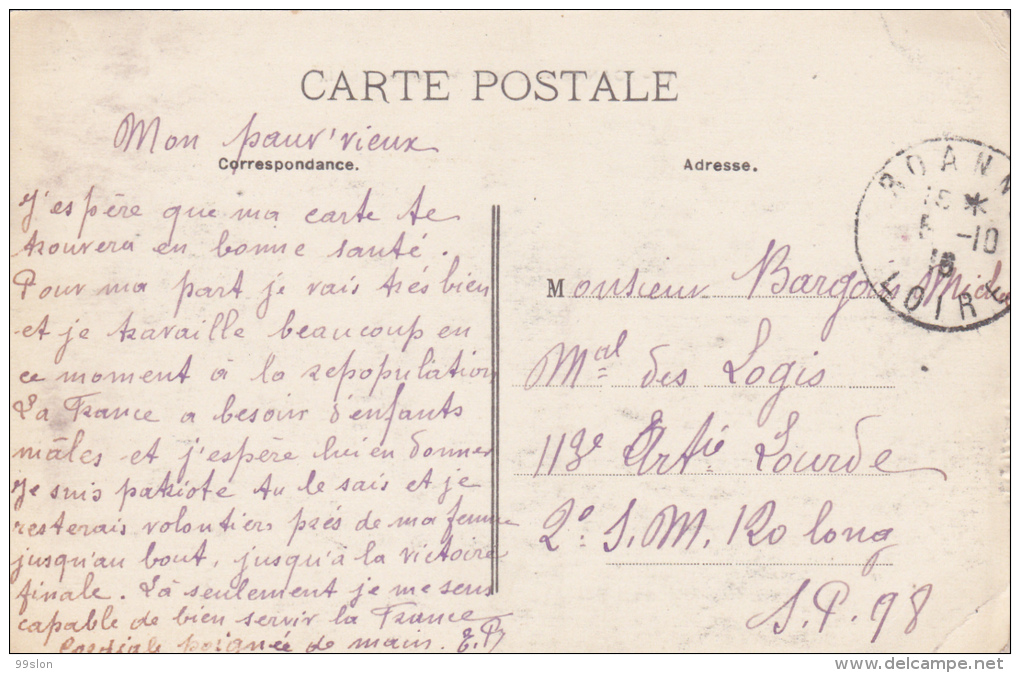 CARTE POSTALE
Mon pauv'vieux
Correspondance.
J'espère que ma carte te
trouvera en bonne santé.
Pour ma part je vais très bien
et je travaille beaucoup en
ce moment à la repopulation
La France a besoin d'enfants
mâles et j'espère lui en donner
Je suis patriote tu le sais et je
resterais volontiers près de ma femme
jusqu'au bout, jusqu'à la victoire
finale. Là seulement je me sens
capable de bien servir la France
Cordiale poignée de main. E.P
Adresse.
Monsieur Bargoin
Mal des Logis
113e Artie Lourde
2e S.M. 120 long
S.P. 98
ROANN
18 *
5 -10
LOIRE
99slon
delcampe.net